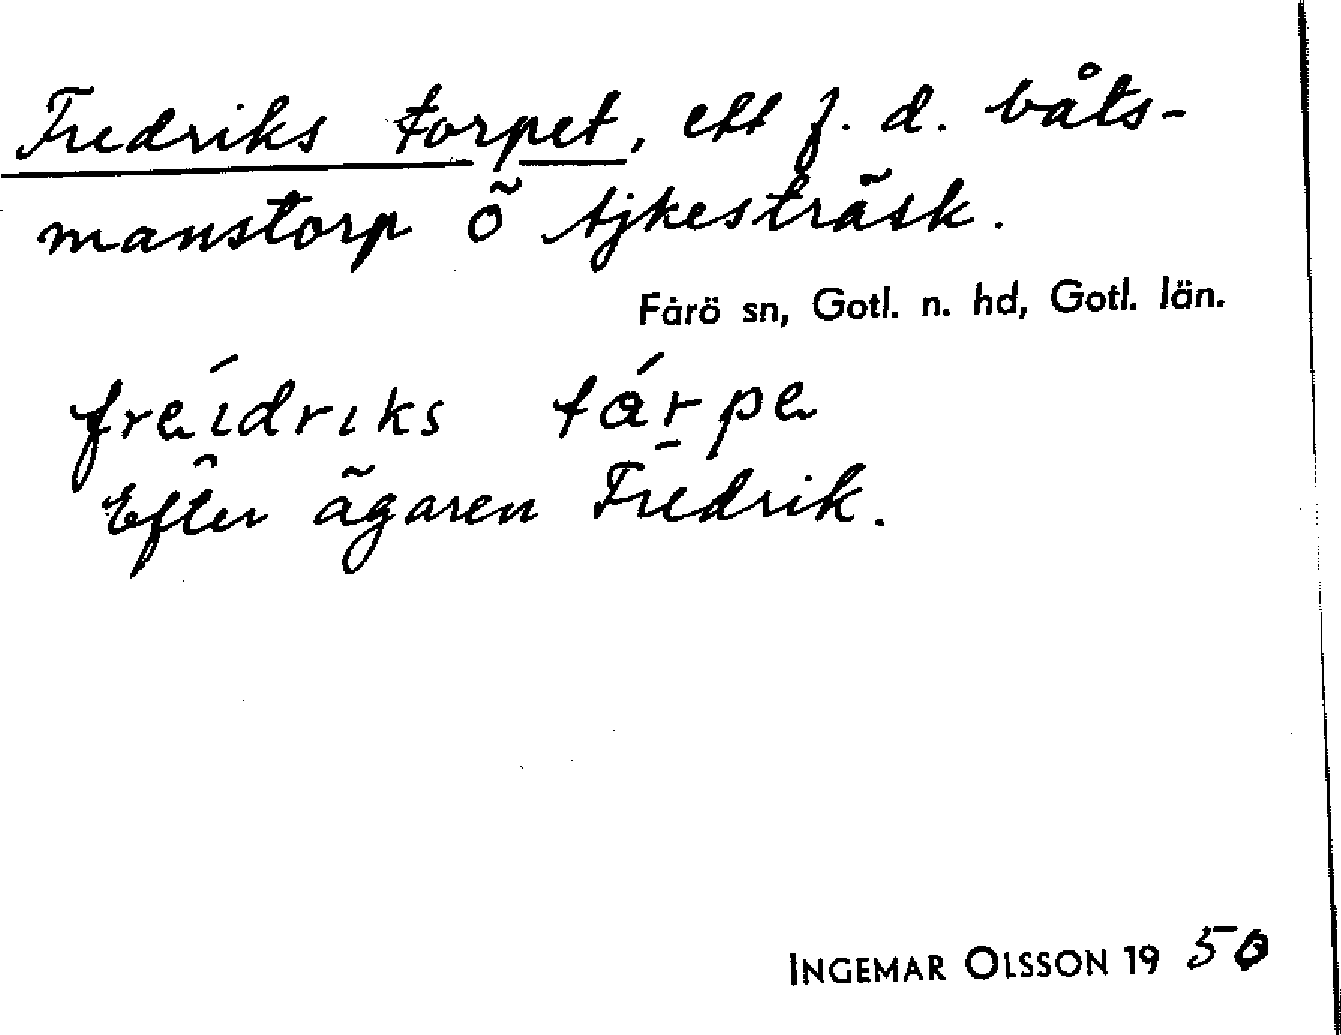 Fredriks torpet, ett f. d. båts-
manstorp Ö Ajkesträsk.
Fårö sn, Gotl. n. hd, Gotl. län.
freidriks tarpe
Efter ägaren Fredrik.
INGEMAR OLSSON 19 50